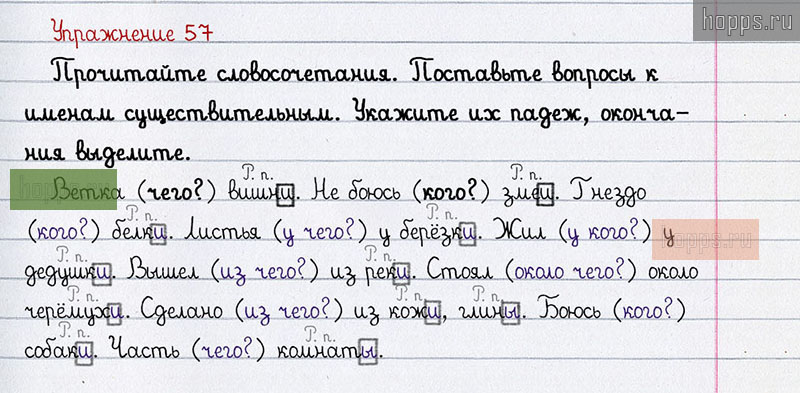 hopps.ru
Упражнение 57
Прочитайте словосочетания. Поставьте вопросы к
именам существительным. Укажите их падеж, оконча-
ния выделите.
Р. п. Р. п.
Ветка (чего?) вишни. Не боюсь (кого?) змеи. Гнездо
Р. п. Р. п.
(кого?) белки. Листья (у чего?) у берёзки. Жил (у кого?) у
hopps.ru
Р. п. Р. п.
дедушки. Вышел (из чего?) из реки. Стоял (около чего?) около
Р. п. Р. п. Р. п.
черёмухи. Сделано (из чего?) из кожи, глины. Боюсь (кого?)
Р. п. Р. п.
собаки. Часть (чего?) комнаты.